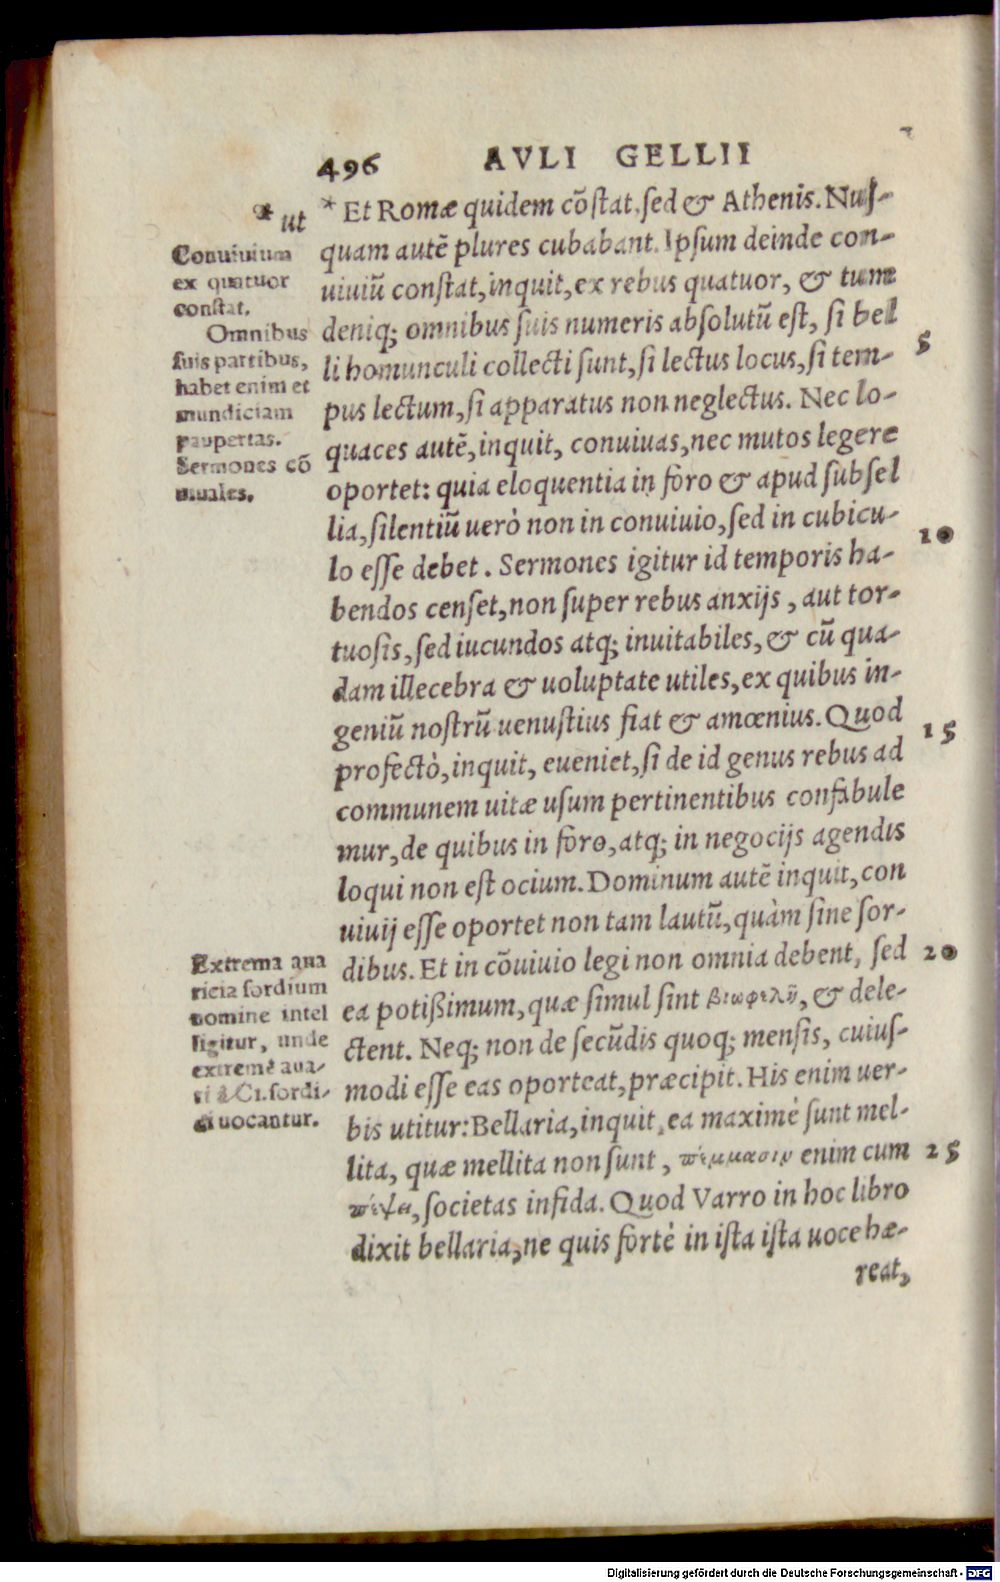 496 AVLI GELLII
* ut
* Et Romæ quidem cõstat, sed & Athenis. Nus-
quam autẽ plures cubabant. Ipsum deinde con-
uiuiũ constat, inquit, ex rebus quatuor, & tum
deniq; omnibus suis numeris absolutũ est, si bel
li homunculi collecti sunt, si lectus locus, si tem-
pus lectum, si apparatus non neglectus. Nec lo-
quaces autẽ, inquit, conuiuas, nec mutos legere
oportet: quia eloquentia in foro & apud subsel
lia, silentiũ uerò non in conuiuio, sed in cubicu-
lo esse debet. Sermones igitur id temporis ha-
bendos censet, non super rebus anxijs, aut tor-
tuosis, sed iucundos atq; inuitabiles, & cũ qua-
dam illecebra & uoluptate utiles, ex quibus in-
geniũ nostrũ uenustius fiat & amœnius. Quod
profectò, inquit, eueniet, si de id genus rebus ad
communem uitæ usum pertinentibus confabule
mur, de quibus in foro, atq; in negocijs agendis
loqui non est ocium. Dominum autẽ inquit, con
uiuij esse oportet non tam lautũ, quàm sine sor-
dibus. Et in cõuiuio legi non omnia debent, sed
ea potißimum, quæ simul sint βιωφελῆ, & dele-
ctent. Neq; non de secũdis quoq; mensis, cuius-
modi esse eas oporteat, præcipit. His enim uer-
bis utitur: Bellaria, inquit, ea maximè sunt mel-
lita, quæ mellita non sunt, πέμμασιν enim cum
πέψει, societas infida. Quod Varro in hoc libro
dixit bellaria, ne quis fortè in ista ista uoce hæ-
reat,
Conuiuium
ex quatuor
constat.
Omnibus
suis partibus,
habet enim et
mundiciam
paupertas.
Sermones cõ
uiuales.
Extrema aua
ricia sordium
nomine intel
ligitur, unde
extremè aua-
ri à Ci. sordi-
di uocantur.
5
10
15
20
25
Digitalisierung gefördert durch die Deutsche Forschungsgemeinschaft - DFG